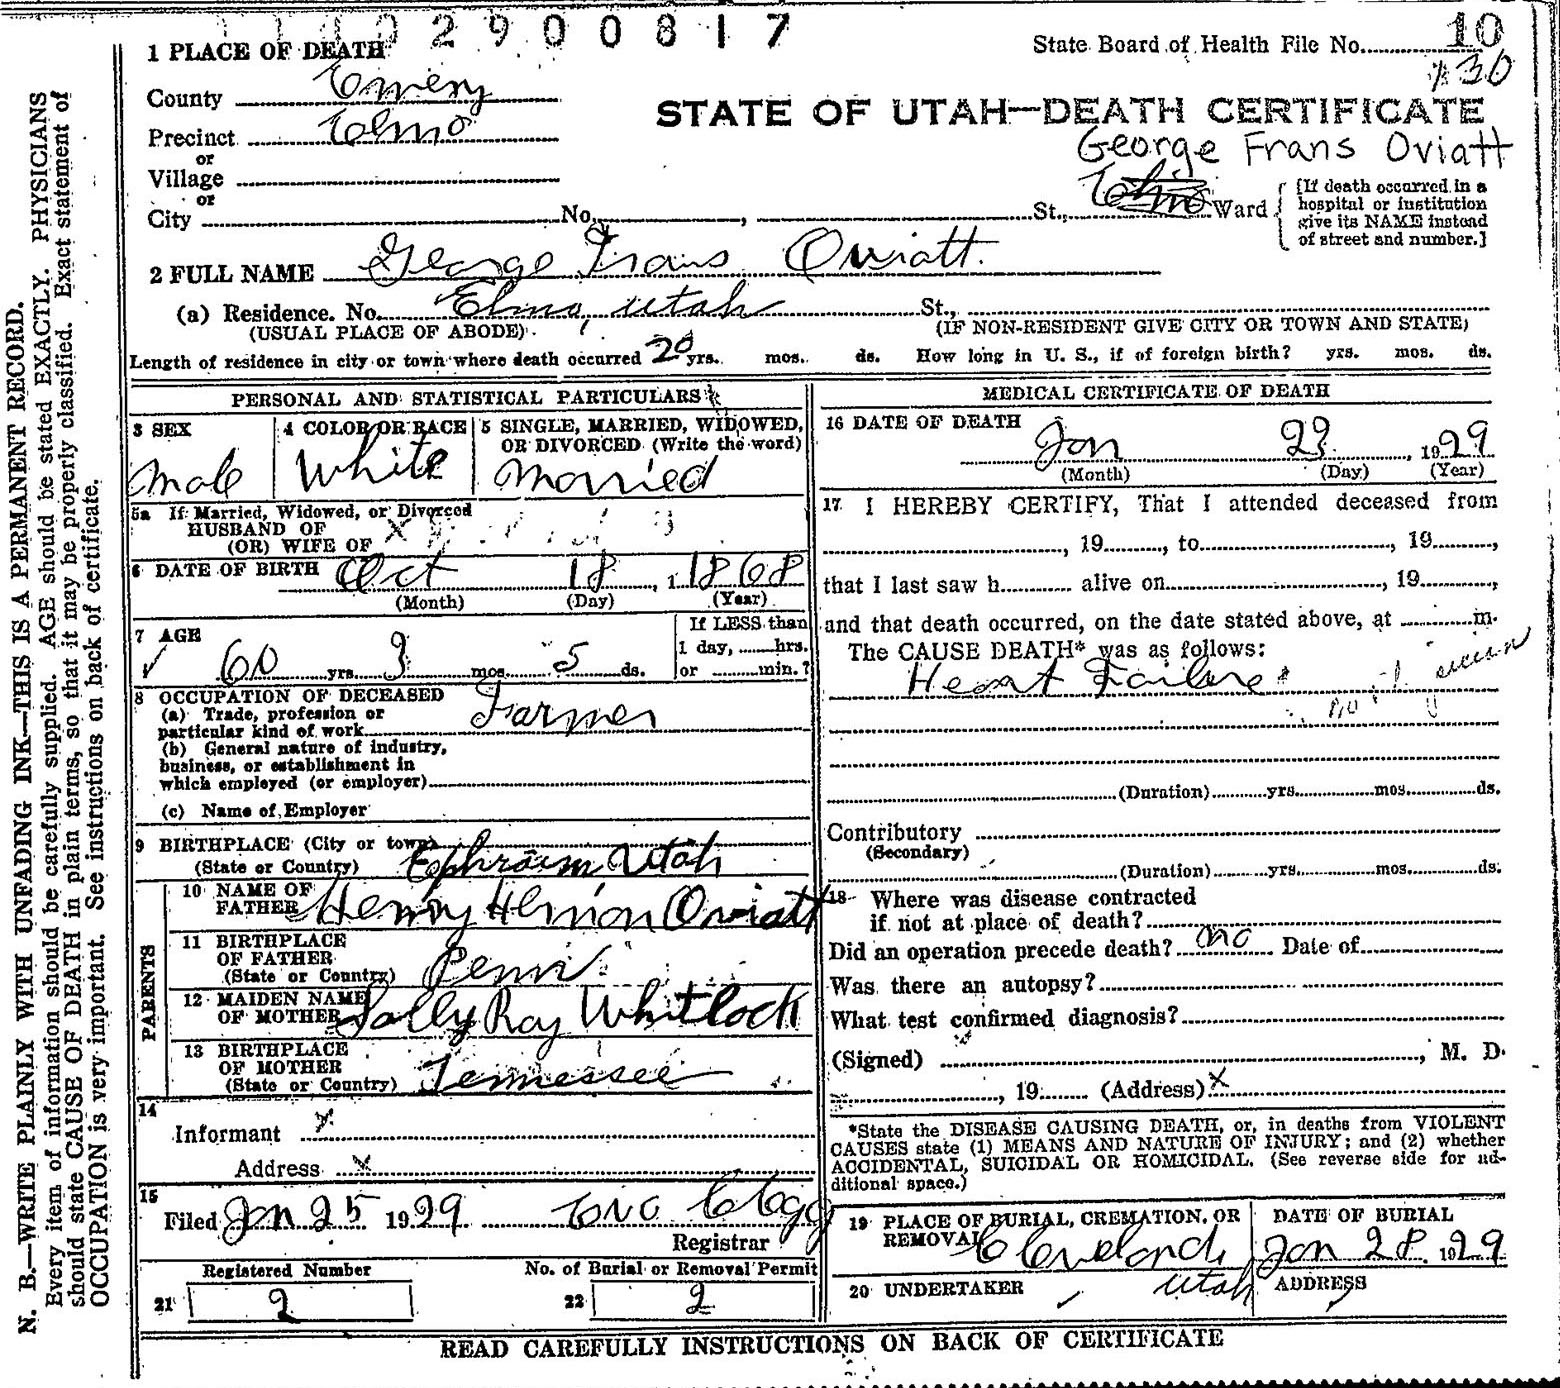 2900817
1 PLACE OF DEATH
State Board of Health File No. 10
130
County Emery
Precinct Elmo
or
Village
or
City No. , St., Elmo Ward
STATE OF UTAH—DEATH CERTIFICATE
George Frans Oviatt
[If death occurred in a
hospital or institution
give its NAME instead
of street and number.]
2 FULL NAME George Frans Oviatt.
(a) Residence. No. Elmo, Utah St.,
(USUAL PLACE OF ABODE) (IF NON-RESIDENT GIVE CITY OR TOWN AND STATE)
Length of residence in city or town where death occurred 20 yrs. mos. ds. How long in U. S., if of foreign birth? yrs. mos. ds.
PERSONAL AND STATISTICAL PARTICULARS
3 SEX
Male
4 COLOR OR RACE
White
5 SINGLE, MARRIED, WIDOWED,
OR DIVORCED (Write the word)
Married
5a If Married, Widowed, or Divorced
HUSBAND OF X
(OR) WIFE OF
6 DATE OF BIRTH Oct 18, 1 1868
(Month) (Day) (Year)
7 AGE
60 yrs 3 mos. 5 ds.
If LESS than
1 day, hrs.
or min.?
8 OCCUPATION OF DECEASED
(a) Trade, profession or
particular kind of work Farmer
(b) General nature of industry,
business, or establishment in
which employed (or employer)
(c) Name of Employer
9 BIRTHPLACE (City or town)
(State or Country) Ephraim Utah
PARENTS
10 NAME OF
FATHER Henry Hernon Oviatt
11 BIRTHPLACE
OF FATHER
(State or Country) Penn
12 MAIDEN NAME
OF MOTHER Sally Ray Whitlock
13 BIRTHPLACE
OF MOTHER
(State or Country) Tennessee
14
Informant X
Address X
15
Filed Jan 25 1929
Registrar
Registered Number
21 2
No. of Burial or Removal Permit
22 2
MEDICAL CERTIFICATE OF DEATH
16 DATE OF DEATH
Jan 23, 1929
(Month) (Day) (Year)
17 I HEREBY CERTIFY, That I attended deceased from
, 19 , to , 19 ,
that I last saw h alive on , 19 ,
and that death occurred, on the date stated above, at m.
The CAUSE DEATH* was as follows:
Heart Failure
(Duration) yrs. mos. ds.
Contributory
(Secondary)
(Duration) yrs. mos. ds.
18 Where was disease contracted
if not at place of death?
Did an operation precede death? no Date of
Was there an autopsy?
What test confirmed diagnosis?
(Signed) , M. D.
, 19 (Address) X
*State the DISEASE CAUSING DEATH, or, in deaths from VIOLENT
CAUSES state (1) MEANS AND NATURE OF INJURY; and (2) whether
ACCIDENTAL, SUICIDAL OR HOMICIDAL. (See reverse side for ad-
ditional space.)
19 PLACE OF BURIAL, CREMATION, OR
REMOVAL Cleveland
Utah
DATE OF BURIAL
Jan 28 1929
20 UNDERTAKER
ADDRESS
READ CAREFULLY INSTRUCTIONS ON BACK OF CERTIFICATE
N. B.—WRITE PLAINLY WITH UNFADING INK—THIS IS A PERMANENT RECORD.
Every item of information should be carefully supplied. AGE should be stated EXACTLY. PHYSICIANS
should state CAUSE OF DEATH in plain terms, so that it may be properly classified. Exact statement of
OCCUPATION is very important. See instructions on back of certificate.